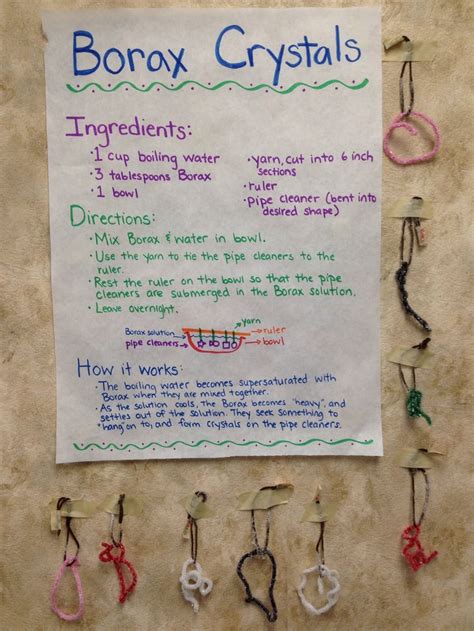 Borax Crystals
Ingredients:
• 1 cup boiling water
• 3 tablespoons Borax
• 1 bowl
• yarn, cut into 6 inch
sections
• ruler
• pipe cleaner (bent into
desired shape)
Directions:
• Mix Borax & water in bowl.
• Use the yarn to tie the pipe cleaners to the
ruler.
• Rest the ruler on the bowl so that the pipe
cleaners are submerged in the Borax solution.
• Leave overnight.
yarn
Borax solution
ruler
pipe cleaners
bowl
How it works:
• The boiling water becomes supersaturated with
Borax when they are mixed together.
• As the solution cools, the Borax becomes "heavy", and
settles out of the solution. They seek something to
hang on to, and form crystals on the pipe cleaners.